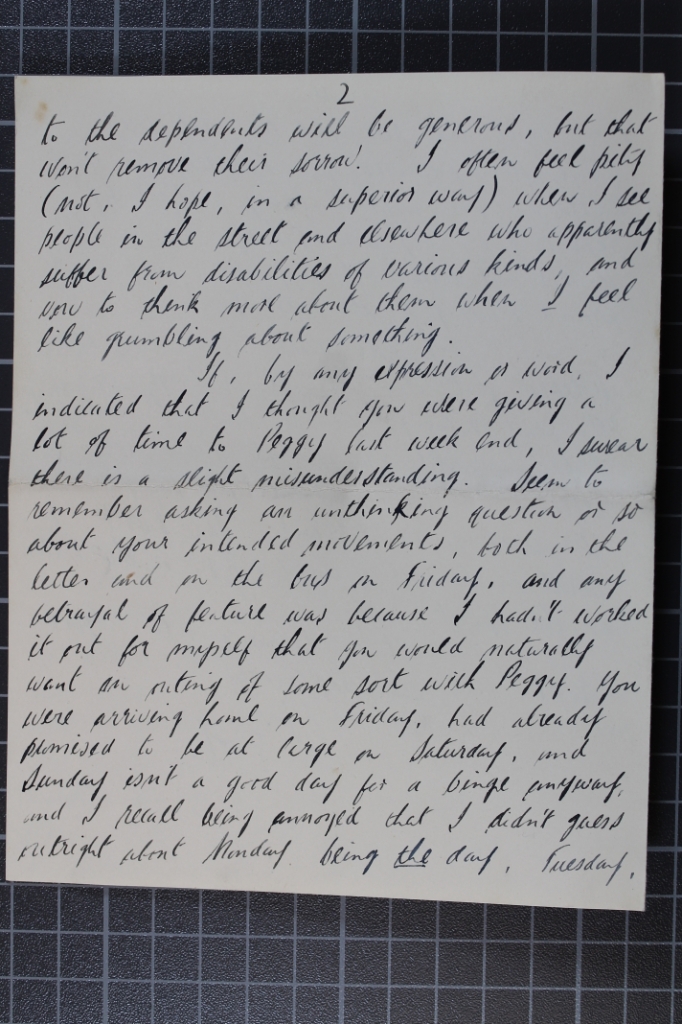 2
to the dependents will be generous, but that
won't remove their sorrow. I often feel pity
(not, I hope, in a superior way) when I see
people in the street and elsewhere who apparently
suffer from disabilities of various kinds, and
vow to think more about them when I feel
like grumbling about something.
If, by any expression or word, I
indicated that I thought you were giving a
lot of time to Peggy last week end, I swear
there is a slight misunderstanding. Seem to
remember asking an unthinking question or so
about your intended movements, both in the
letter and on the bus on Friday, and any
betrayal of feature was because I hadn't worked
it out for myself that you would naturally
want an outing of some sort with Peggy. You
were arriving home on Friday, had already
promised to be at large on Saturday, and
Sunday isn't a good day for a binge anyway,
and I recall being annoyed that I didn't guess
outright about Monday being the day. Tuesday,